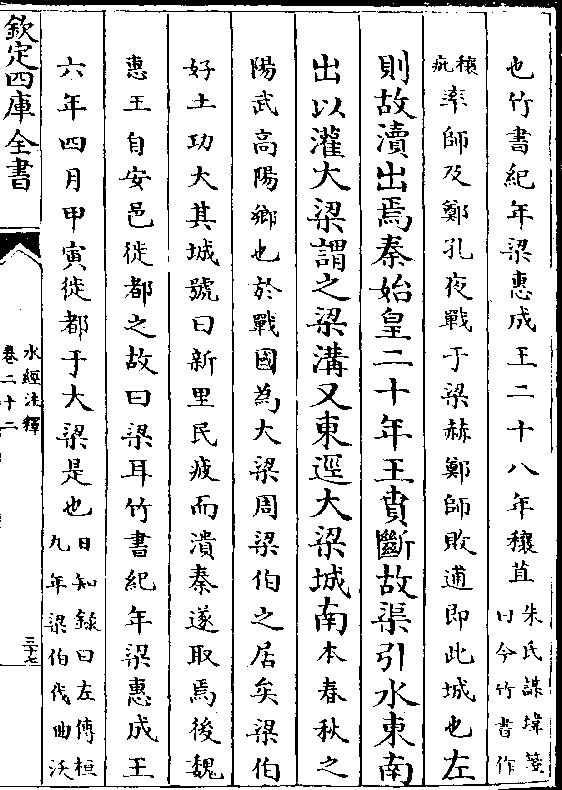 也竹書紀年梁惠成王二十八年穰苴朱氏謀㙔箋曰今竹書作
穰疪率師及鄭孔夜戰于梁赫鄭師敗逋即此城也左
則故瀆出焉秦始皇二十年王賁斷故渠引水東南
出以灌大梁謂之梁溝又東逕大梁城南本春秋之
陽武高陽鄉也於戰國為大梁周梁伯之居矣梁伯
好土功大其城號曰新里民疲而潰秦遂取焉後魏
惠王自安邑徙都之故曰梁耳竹書紀年梁惠成王
六年四月甲寅徙都于大梁是也日知錄曰左傳桓九年梁伯伐曲沃
欽定四庫全書
水經注釋
卷二十二
三十七